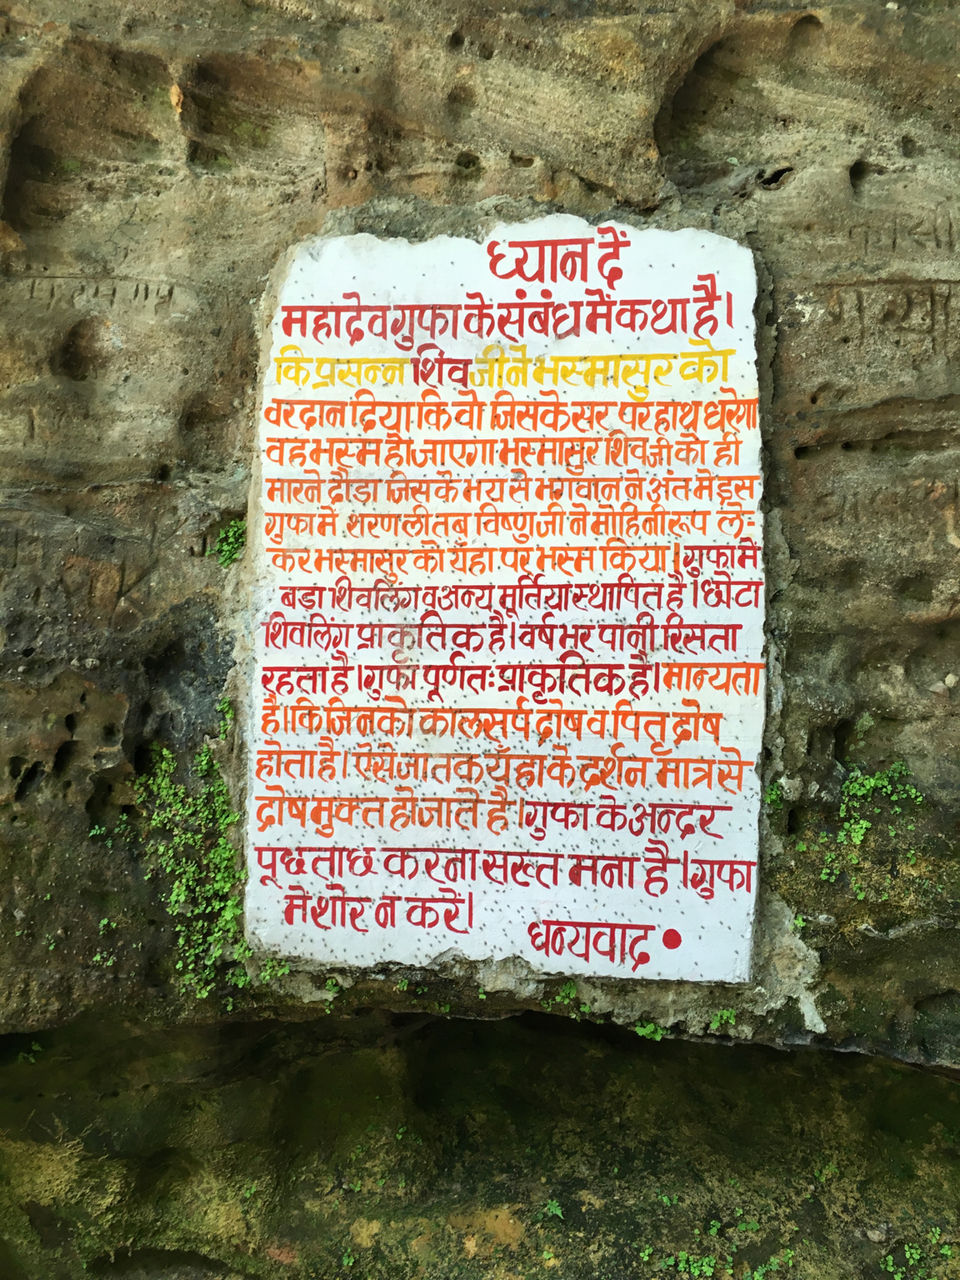 ध्यान दें
महादेव गुफा के संबंध में कथा है।
कि प्रसन्न शिव जी ने भस्मासुर को
वरदान दिया कि वो जिसके सर पर हाथ धरेगा
वह भस्म हो जाएगा भस्मासुर शिव जी को ही
मारने दौड़ा जिस के भय से भगवान ने अंत मे इस
गुफा में शरण ली तब विष्णु जी ने मोहिनी रूप ले-
कर भस्मासुर को यँहा पर भस्म किया। गुफा मे
बड़ा शिवलिंग व अन्य मूर्तिया स्थापित है। छोटा
शिवलिंग प्राकृतिक है। वर्ष भर पानी रिसता
रहता है। गुफा पूर्णतः प्राकृतिक है। मान्यता
है। कि जिनको कालसर्प दोष व पितृ दोष
होता है। ऐसे जातक यँहा के दर्शन मात्र से
दोष मुक्त हो जाते है। गुफा के अन्दर
पूछताछ करना सख्त मना है। गुफा
मे शोर न करें।
धन्यवाद